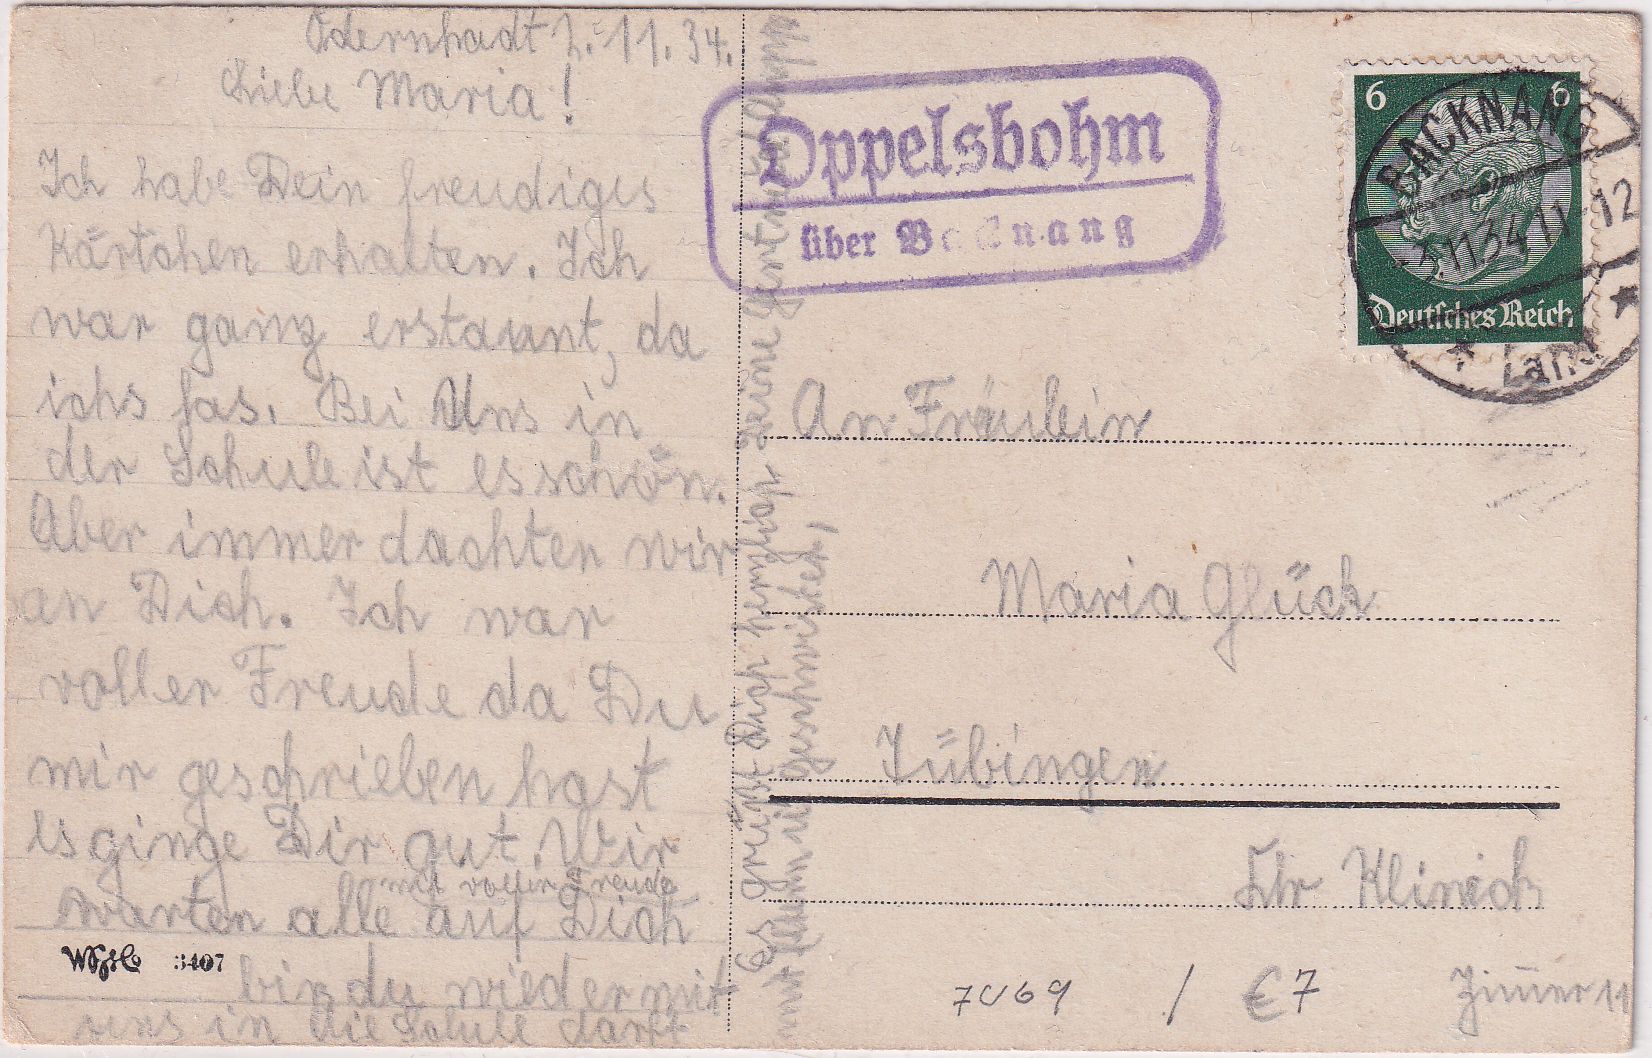 Ödernhardt 2.11.34.
Liebe Maria!
Ich habe Dein freudiges
Kärtchen erhalten. Ich
war ganz erstaunt, da
ichs las. Bei Uns in
der Schule ist es schön.
Aber immer dachten wir
an Dich. Ich war
voller Freude da Du
mir geschrieben hast
es ginge Dir gut. Wir
mit voller Freude
warten alle auf Dich
bis du wieder mit
uns in die Schule darft
Es grüßt Dich herzlich Deine Gertrud
mit Geschwister,
W.S.St.C.
3407
Oppelsbohm
über Backnang
6 6
Deutsches Reich
BACKNANG
-3.11.34 11-12
Land
An Fräulein
Maria Glück
Tübingen
Chr Klinick
Zimmer 11
7069 / €7